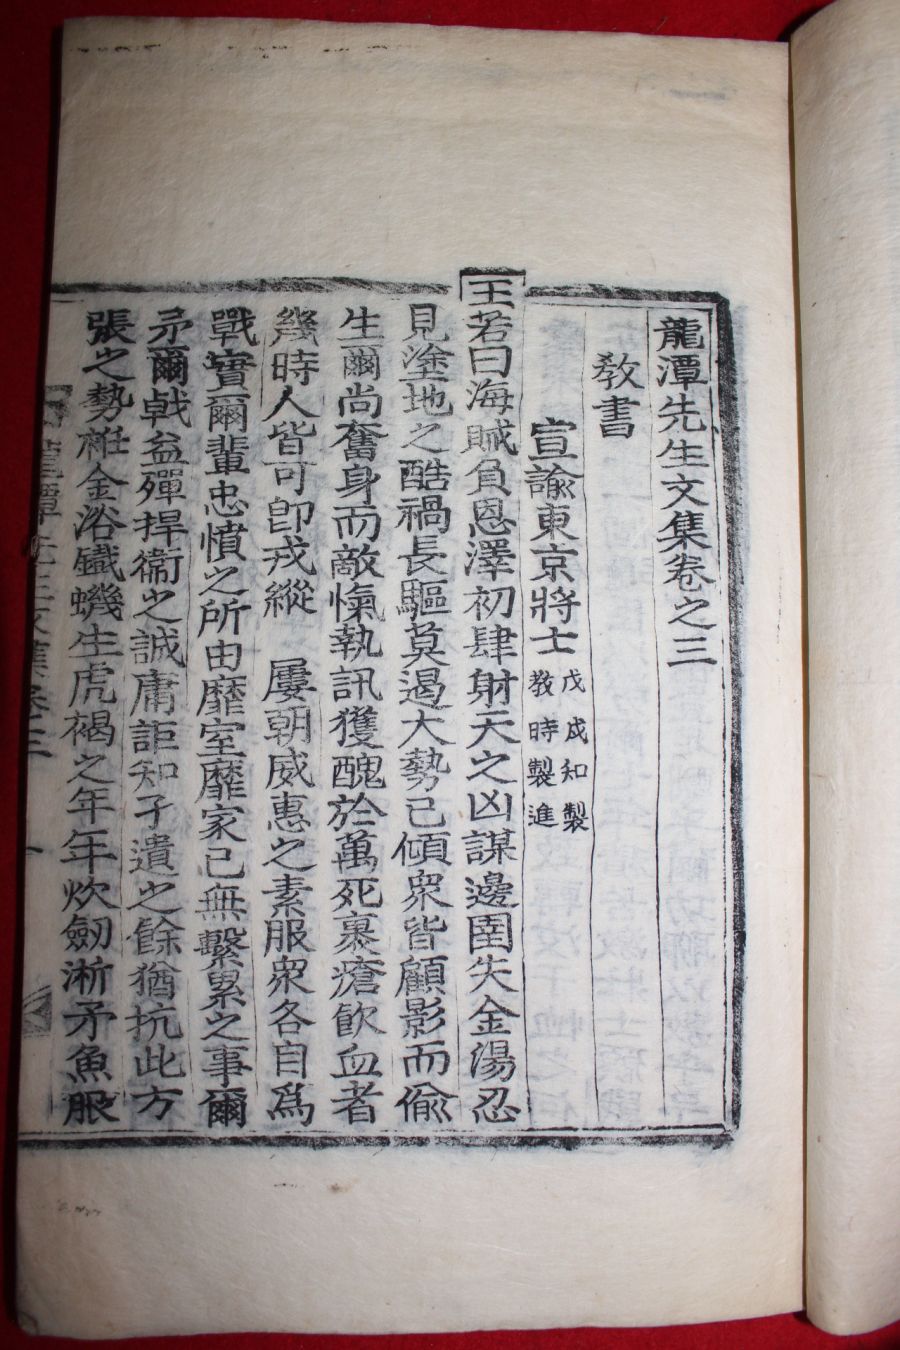 龍潭先生文集卷之三
教書
宣諭東京將士
戊戌知製
教時製進
王若曰海賊負恩澤初肆射天之凶謀邊圉失金湯忍
見塗地之酷禍長驅莫遏大勢已傾衆皆顧影而偸
生爾尚奮身而敵愾執訊獲醜於萬死裹瘡飮血者
幾時人皆可卽戎縱 屢朝威惠之素服衆各自爲
戰實爾輩忠憤之所由靡室靡家已無繫累之事爾
矛爾戟益殫捍衛之誠庸詎知孑遺之餘猶抗此方
張之勢袵金浴鐵蟣生虎褐之年年炊劒淅矛魚服